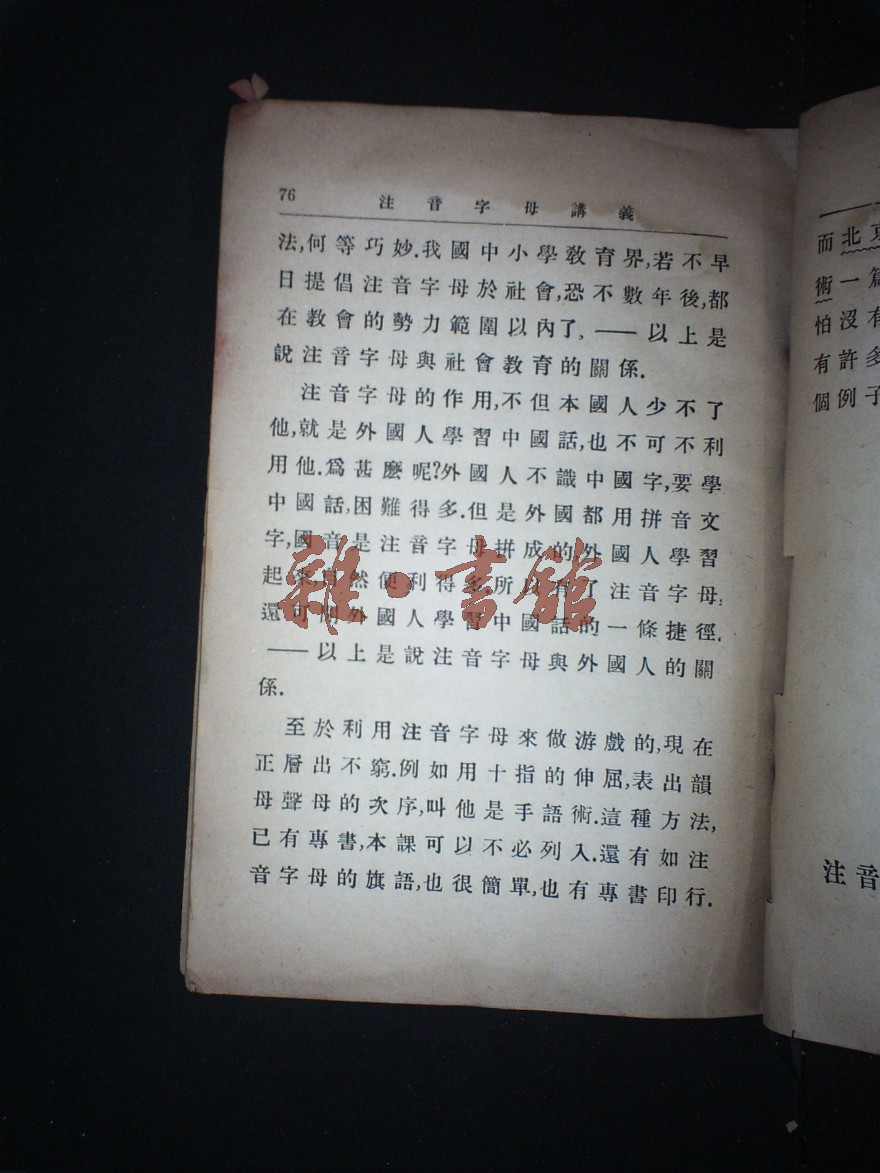 76 注音字母講義
法,何等巧妙.我國中小學教育界,若不早
日提倡注音字母於社會,恐不數年後,都
在教會的勢力範圍以內了,——以上是
說注音字母與社會教育的關係.
注音字母的作用,不但本國人少不了
他,就是外國人學習中國話,也不可不利
用他.爲甚麽呢?外國人不識中國字,要學
中國話,困難得多.但是外國都用拼音文
字,國音是注音字母拼成的,外國人學習
起來,自然便利得多.所以有了注音字母,
還可開外國人學習中國話的一條捷徑.
——以上是說注音字母與外國人的關
係.
至於利用注音字母來做游戲的,現在
正層出不窮.例如用十指的伸屈,表出韻
母聲母的次序,叫他是手語術.這種方法,
已有專書,本課可以不必列入.還有如注
音字母的旗語,也很簡單,也有專書印行.
雜·書館
而北
術一篇
怕沒有
有許多
個例子
注音